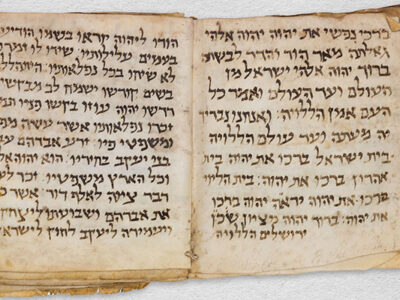 ברכי נפשי את יהוה יהוה אלהי
גדלתה מאד הוד והדר לבשת:
ברוך יהוה אלהי ישראל מן
העולם ועד העולם ואמר כל
העם אמן הללויה: ואנחנו נברך
יה מעתה ועד עולם הללויה
בית ישראל ברכו את יהוה: בית
אהרון ברכו את יהוה: בית הלוי
ברכו את יהוה יראה יהוה ברכו
את יהוה: ברוך יהוה מציון שוכן
ירושלים הללויה
הודו ליהוה קראו בשמו הודיעו
בעמים עלילותיו: שירו לו זמרו
לו שיחו בכל נפלאותיו: התהללו
בשם קודשו ישמח לב מבקשי
דרשו יהוה ועוזו בקשו פניו
זכרו נפלאותיו אשר עשה
ומשפטי פיו: זרע אברהם
בני יעקב בחיריו: הוא יהוה
וכל הארץ משפטיו: זכר
דבר ציוה לאלף דור: אשר
את אברהם ושבועתו
ויעמידה ליעקב לחוק